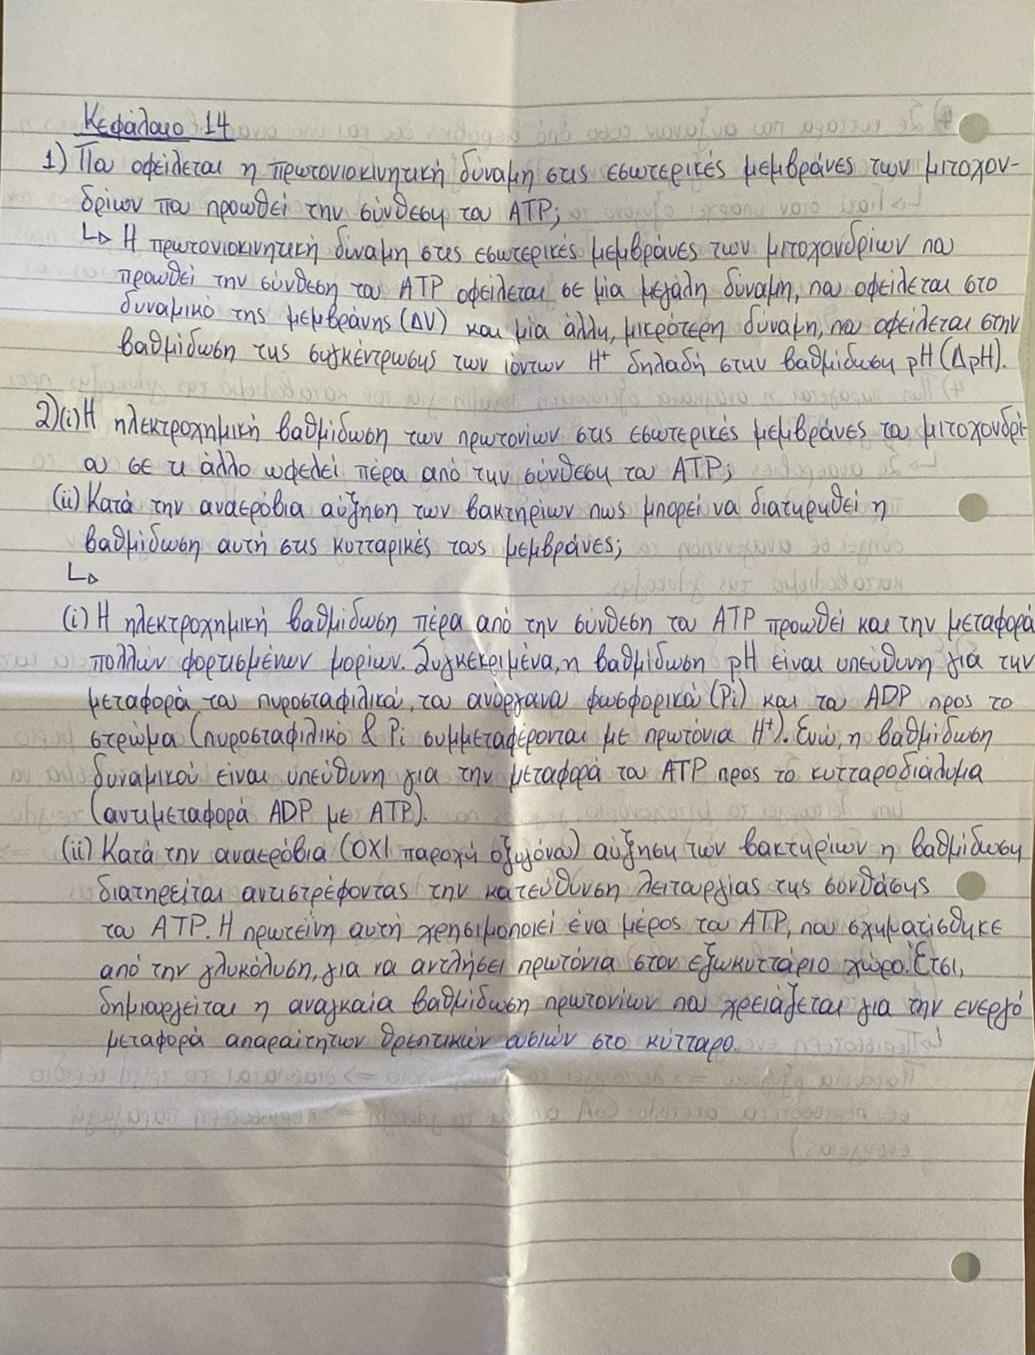 Κεφάλαιο 14
1) Που οφείλεται η πρωτονιοκινητική δύναμη στις εσωτερικές μεμβράνες των μιτοχον-
δρίων που προωθεί την σύνθεση του ATP;
↳ Η πρωτονιοκινητική δύναμη στις εσωτερικές μεμβράνες των μιτοχονδρίων που
προωθεί την σύνθεση του ATP οφείλεται σε μία μεγάλη δύναμη, που οφείλεται στο
δυναμικό της μεμβράνης (ΔV) και μία άλλη, μικρότερη δύναμη, που οφείλεται στην
βαθμίδωση της συγκέντρωσης των ιόντων H⁺ δηλαδή στην βαθμίδωση pH (ΔpH).
2)(i) Η ηλεκτροχημική βαθμίδωση των πρωτονίων στις εσωτερικές μεμβράνες του μιτοχονδρί-
ου σε τι άλλο ωφελεί πέρα από την σύνθεση του ATP;
(ii) Κατά την αναερόβια αύξηση των βακτηρίων πως μπορεί να διατηρηθεί η
βαθμίδωση αυτή στις κυτταρικές τους μεμβράνες;
↳
(i) Η ηλεκτροχημική βαθμίδωση πέρα από την σύνθεση του ATP προωθεί και την μεταφορά
πολλών φορτισμένων μορίων. Συγκεκριμένα, η βαθμίδωση pH είναι υπεύθυνη για την
μεταφορά του πυροσταφιλικού, του ανόργανου φωσφορικού (Pi) και του ADP προς το
στρώμα (πυροσταφιλικό & Pi συμμεταφέρονται με πρωτόνια H⁺). Ενώ, η βαθμίδωση
δυναμικού είναι υπεύθυνη για την μεταφορά του ATP προς το κυτταροδιάλυμα
(αντιμεταφορά ADP με ATP).
(ii) Κατά την αναερόβια (ΟΧΙ παροχή οξυγόνου) αύξηση των βακτηρίων η βαθμίδωση
διατηρείται αντιστρέφοντας την κατεύθυνση λειτουργίας της συνθάσης
του ATP. Η πρωτείνη αυτή χρησιμοποιεί ένα μέρος του ATP, που σχηματίσθηκε
από την γλυκόλυση, για να αντλήσει πρωτόνια στον εξωκυττάριο χώρο. Έτσι,
δημιουργείται η αναγκαία βαθμίδωση πρωτονίων που χρειάζεται για την ενεργό
μεταφορά απαραίτητων θρεπτικών ουσιών στο κύτταρο.